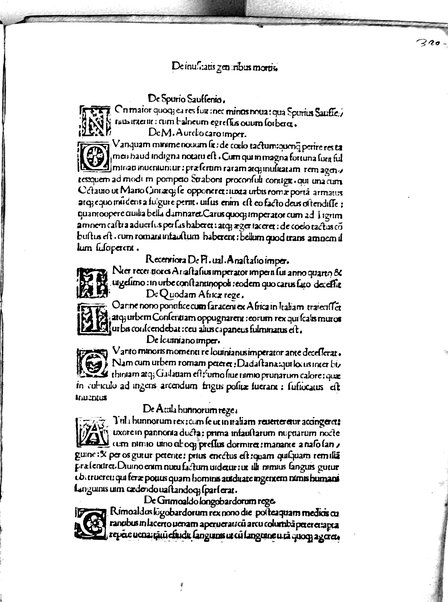 De inusitatis generibus mortis.
De Spurio Sauffenio.
NOn maior quoq; ea res fuit: nec minus noua: qua Spurius Sauffe,
nius interiit: cum balneum egressus ouum sorberet.
De M. Aurelio caro imper.
OVanquam minime nouum sit: de coelo tactum: quenq; perire res ta
men haud indigna notatu est. Cum qui in magna fortuna sunt ful
mirari inueniuntur: praesertim raram atq; inusitatam rem agen,
tes: quem ad modum pompeio Straboni proconsuli contigit. qui una cum
Octauio ut Mario Cinnaeq; se opponeret: iuxta urbis romae portā armatus
atq; equo insidens a fulgure periit. uisus enim est eo facto deus ostendisse:
quantoopere ciuilia bella damnaret. Carus quoq; imperator cum ad Tigrim
amnem castra aduersus persas haberet: atq; aeger iaceret: de coelo tactus cō
bustus est. cum romani infaustum haberent: bellum quod trans amnem il
lum susciperent.
Recentiora De Fl. ual. Anastasio imper.
INter recentiores Anastasius imperator imperii sui anno quarto &
uigesimo: in urbe constantinopoli: eodem quo carus fato decessit
De Quodam Africae rege.
IOanne nono pontifice cum saraceni ex Africa in Italiam traiecissēt
atq; urbem Consentiam oppugnarent: eorum rex qui scalis muros
urbis conscendebat: ceu alius capaneus fulminatus est.
De iouiniano imper.
QVanto minoris momenti re Iouinianus imperator ante decesserat.
Nam cum urbem romam peteret: Dadastanā: qui locus inter bi
thiniam atq; Galatiam est: fumo siue nimio prunarum calore: quae
in cubiculo ad ingens arcendum frigus positae fuerant: suffocatus est
inuentus
De Attila hunnorum rege.
ATtila hunnorum rex: cum se ut in italiam reuerteretur accingeret
uxore in pannonia ducta: prima infaustarum nuptiarum nocte
cum nimio uino oboeq; pressus dormiret: manante a naso san,
guine: & per os gutur petente: prius enectus est: quam quisquam rem illā
praesentiret. Diuino enim nutu factum uidetur: ut illi nimius sanguis gutur
obstrueret: qui ferae potius quam hominis auiditate ingentem nimis humani
sanguinis uim caedendo uastandoq; sparserat.
De Grimoaldo longobardorum rege.
GRimoaldos lōgobardorum rex nono die posteaquam medicis cu
rantibus in lacerto uenam aperuerat: cū arcu columbā peteret: rapta
repēte uena: tāta effudit sanguinis ut cū sanguine uitā quoq; ageret.